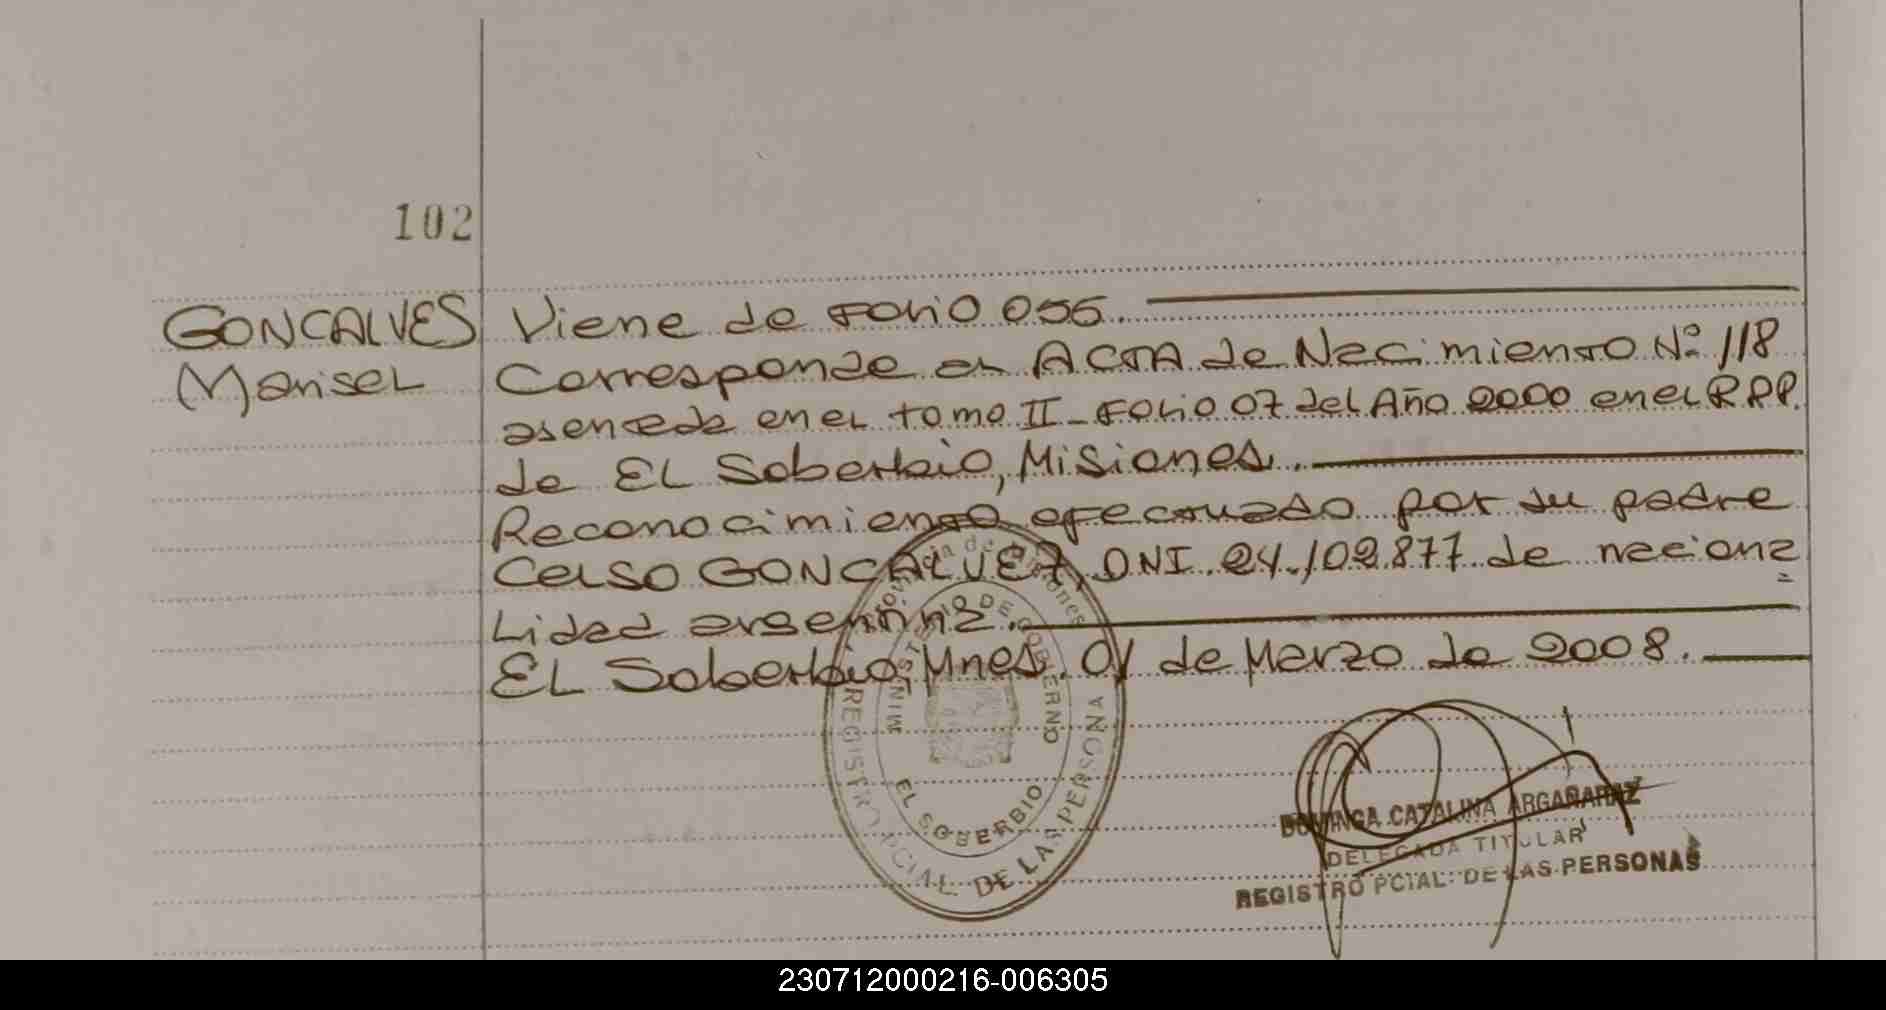 102
GONCALVES
Marisel
Viene de Folio 056.
Corresponde al ACTA de Nacimiento Nº 118
asentada en el tomo II - Folio 07 del Año 2000 en el R.P.P.
de EL Soberbio, Misiones.
Reconocimiento efectuado por su padre
Celso GONCALVEZ, DNI. 24.102.877 de naciona
Lidad argentina.
EL Soberbio, Mnes. 01 de Marzo de 2008.
Provincia de Misiones
MINISTERIO DE GOBIERNO
EL SOBERBIO
REGISTRO PCIAL. DE LAS PERSONAS
DOMINGA CATALINA ARGAÑARAZ
DELEGADA TITULAR
REGISTRO PCIAL. DE LAS PERSONAS
230712000216-006305